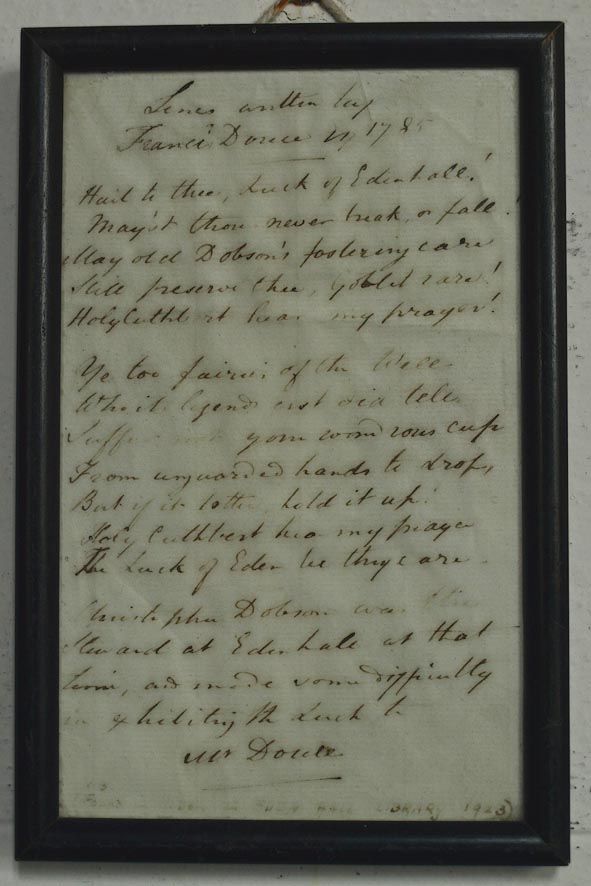 Lines written by
Francis Douce in 1785
Hail to thee, Luck of Edenhall!
May'st thou never break, or fall.
May old Dobson's fostering care
Still preserve thee, goblet rare!
Holy Cuthbert hear my prayer!
Ye too fairies of the Well
Who it legends erst did tell
Suffer not your wondrous cup
From unguarded hands to drop,
But if it totter, hold it up!
Holy Cuthbert hear my prayer
The Luck of Eden be thy care.
Christopher Dobson was the
Steward at Edenhall at that
time, and made some difficulty
in exhibiting the Luck to
Mr Douce
LIBRARY 1923)